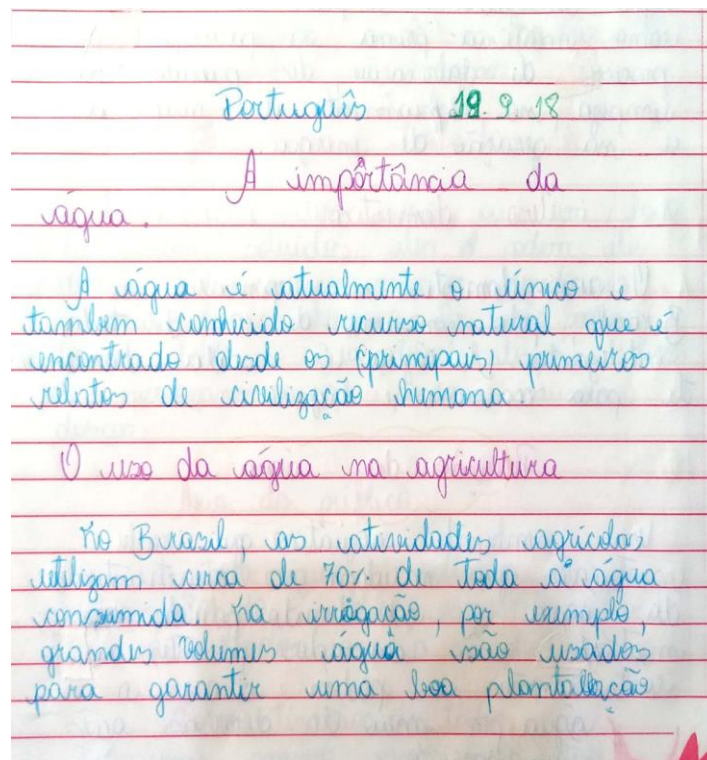 Português 19.9.18
A importância da
água.
A água é atualmente o único e
também conhecido recurso natural que é
encontrado desde os (principais) primeiros
relatos de civilização humana
O uso da água na agricultura
No Brasil, as atividades agrícolas
utilizam cerca de 70% de toda a água
consumida na irrigação, por exemplo,
grandes volumes água são usados
para garantir uma boa